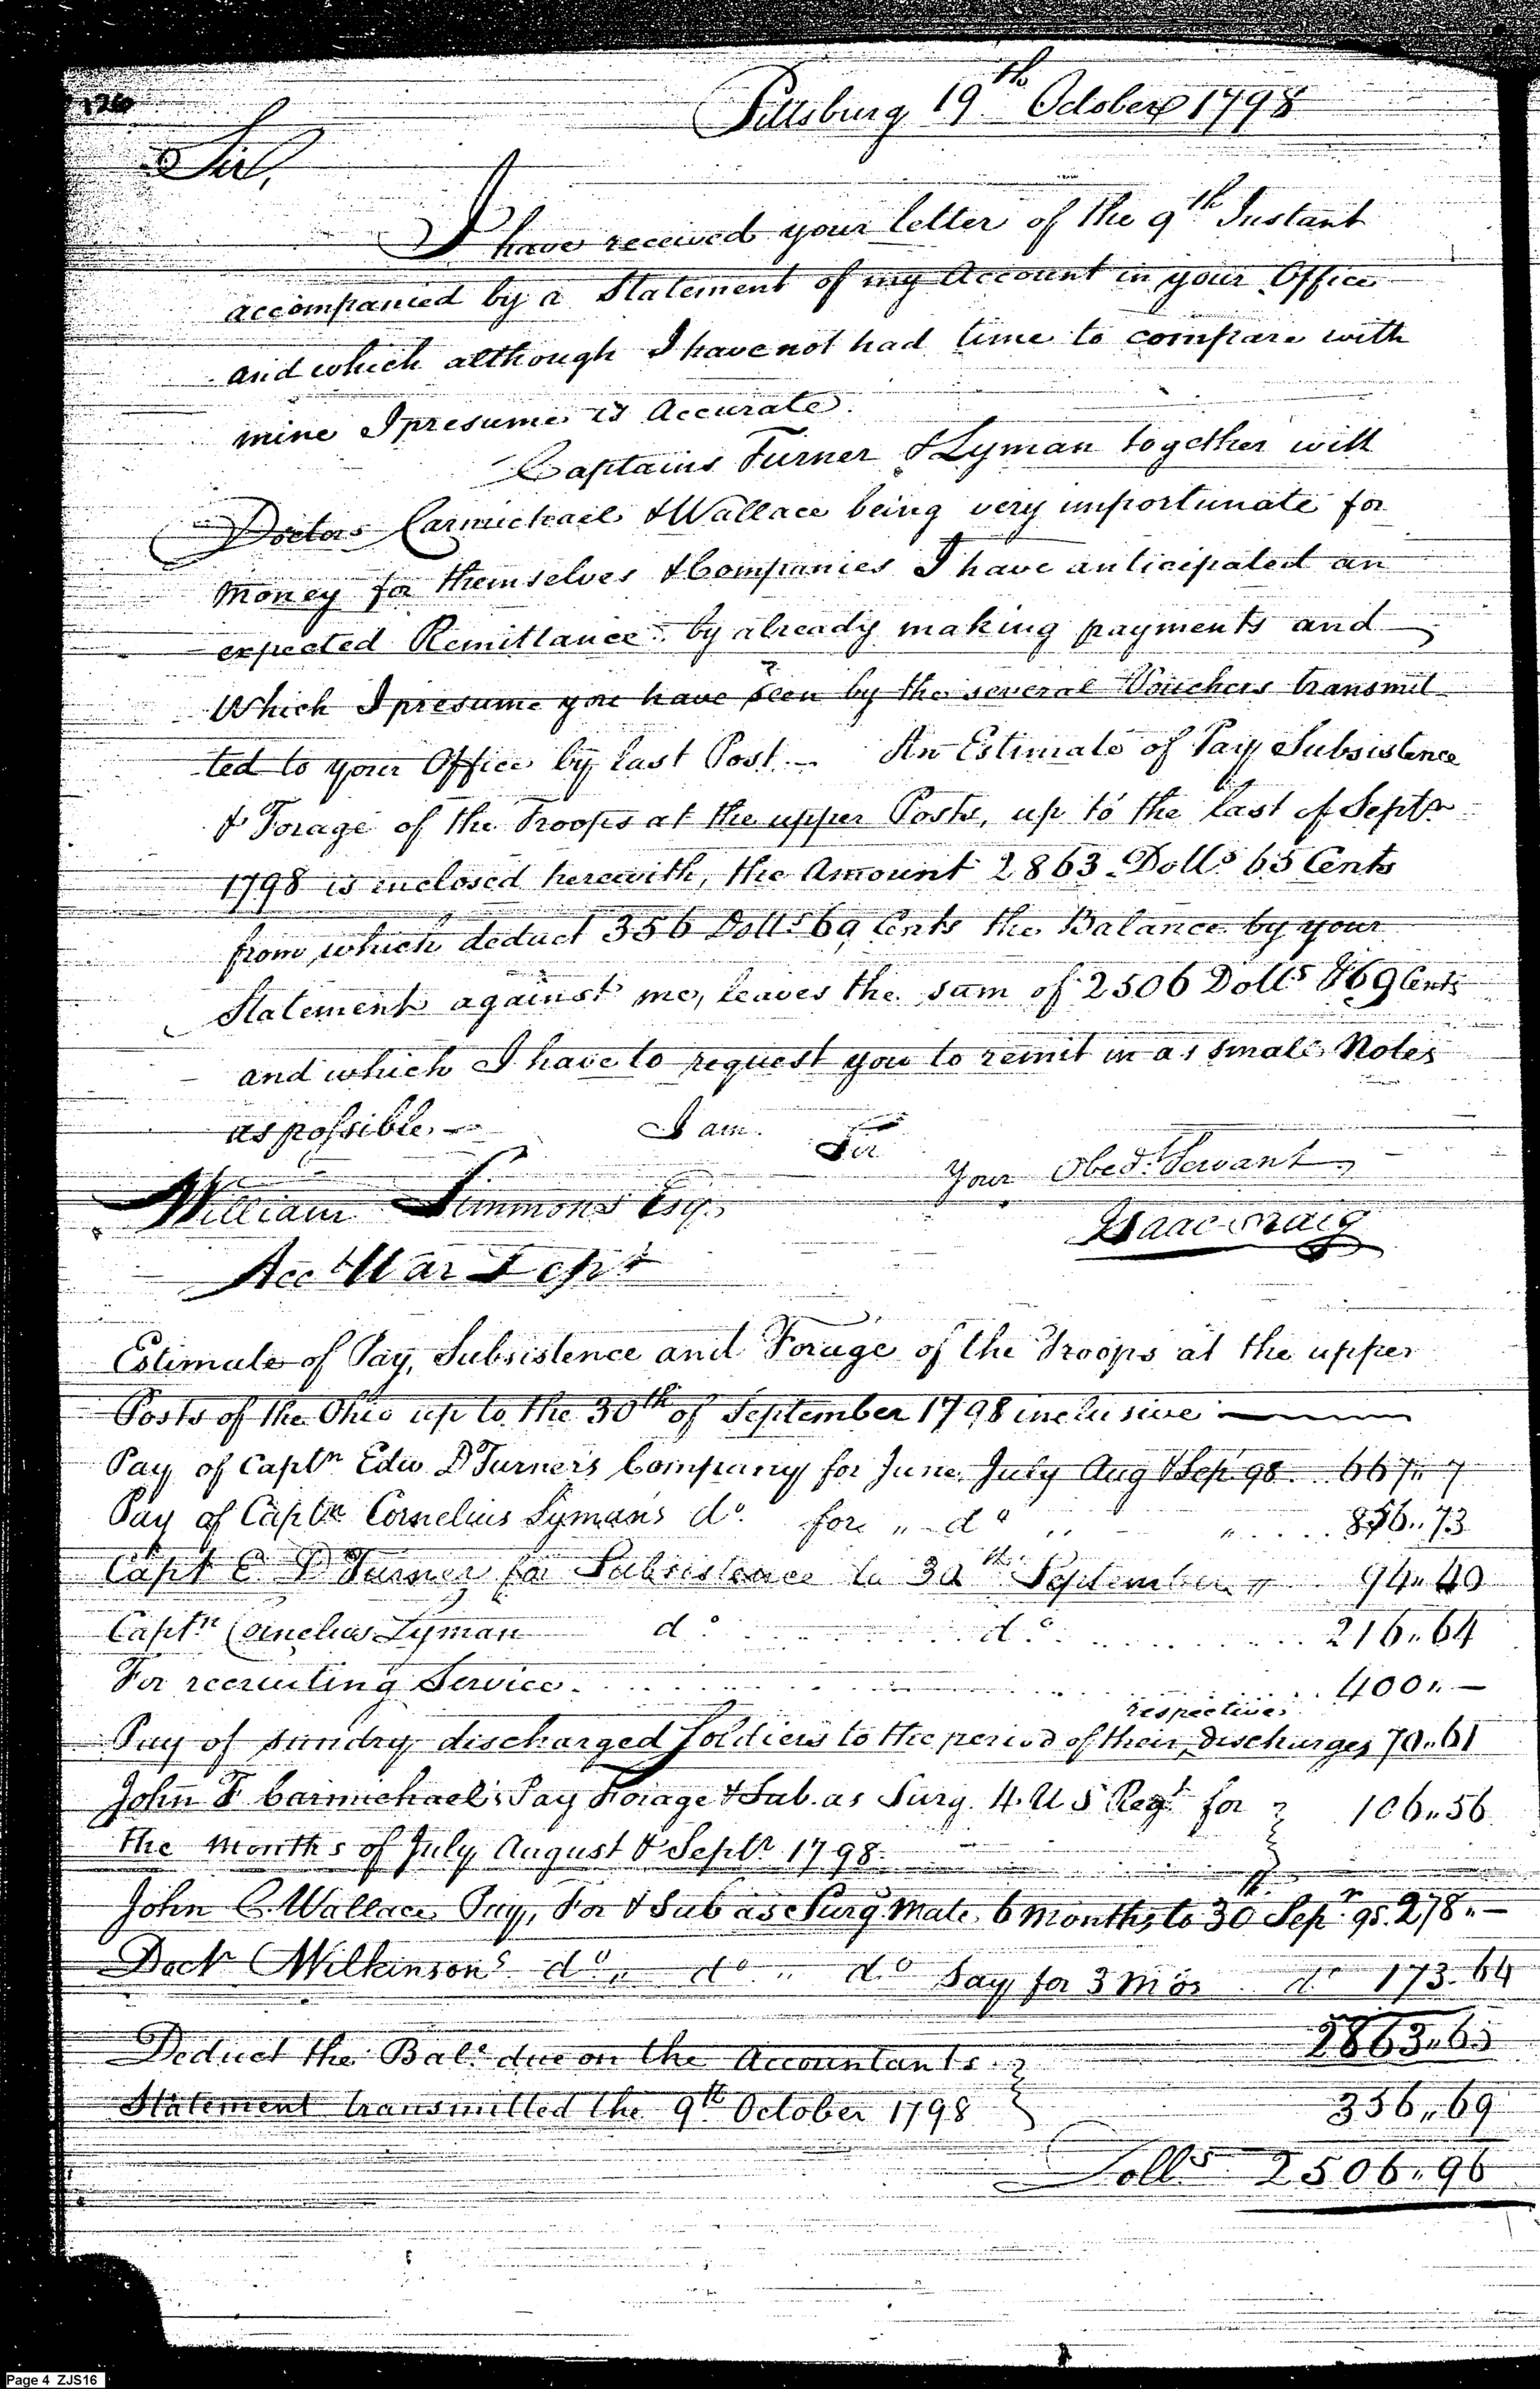 126
Pittsburg 19th October 1798
Sir,
I have received your letter of the 9th Instant
accompanied by a Statement of my Account in your Office
and which although I have not had time to compare with
mine I presume is Accurate.
Captains Turner & Lyman together with
Doctors Carmichael & Wallace being very importunate for
money for themselves & Companies I have anticipated an
expected Remittance by already making payments and
which I presume you have seen by the several Vouchers transmit-
ted to your Office by last Post.— An Estimate of Pay Subsistence
& Forage of the Troops at the upper Posts, up to the last of Septr
1798 is inclosed herewith, the Amount 2863 Dolls 65 Cents
from which deduct 356 Dolls 69 Cents the Balance by your
Statement against me, leaves the sum of 2506 Dolls &69 Cents
and which I have to request you to remit in as small Notes
as possible.— I am Sir
Your Obedt Servant
William Simmons Esq.
Isaac Craig
Acct War Dept
Estimate of Pay, Subsistence and Forage of the Troops at the upper
Posts of the Ohio up to the 30th of September 1798 inclusive
Pay of Captn Edw D Turner's Company for June July Aug & Sep 98 667"7
Pay of Captn Cornelius Lyman's do. for " do " " 856..73
Capt E D Turner for Subsistence to 30th September " 94"40
Captn Cornelius Lyman do. do. 216"64
For recruiting Service 400"—
Pay of sundry discharged Soldiers to the period of their respective discharges 70"61
John F Carmichael's Pay Forage & Sub. as Surg. 4 U S Regt for 106"56
the months of July August & Septr 1798
John C. Wallace Pay, For & Sub as Surg Mate 6 months to 30th Sepr 98. 278"—
Doctr Wilkinsons do " do " do Say for 3 Mos do 173.64
2863"65
Deduct the Bale due on the Accountants
Statement transmitted the 9th October 1798 356"69
Dolls 2506"96
Page 4 ZJS16